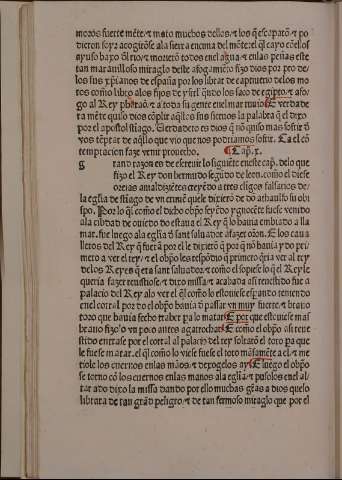 moros fuerte mēte: ⁊ mato muchos dellos: ⁊ los q̄ escaparō ⁊ po
dieron foyr acogirōse ala sierra encima del mōte: el q̄l cayo cō ellos
ayuso baxo el rio: ⁊ murierō todos en el agua ⁊ enlas peñas este
tan marauilloso miraglo deste afogamiēto fizo dios por pro de
los sus xp̄ianos de españa por los librar de captiuerio delos mo
ros como libro alos fijos de yśrl̄ quādo los saco de egipto: ⁊ afo
go al Rey pharaō: ⁊ a toda su gente enel mar ruuio E verdade
ra mēte quiso dios cōplir aq̄llos sus sieruos la palabra q̄ el dixo
por el apostol stiago. Verdadero es dios q̄ nō quiso mas sofrir d̄
vos tēptar de aq̄llo que vio que nos podriamos sofrir. Ca el cō
temptacion faze venir prouecho. ¶ Cap. x.
g rand razon es de escreuir lo siguiēte en este cap̄. delo que
fizo el Rey don bermudo segūdo de leon. como el diese
orias a maldiziētes creyēdo a tres cligos falsarios de
la eglia de stiago de vn crimē quele dixerō de dō athaulfo su obi
spo. Por lo q̄l como el dicho ob̄po seyēdo ynocēte fuese venido
ala cibdad de ouiedo do estaua el Rey q̄ lo hauia embiado a lla
mar. fue luego ala eglia d̄ sant saluador a fazer oraciō. E los caua
lleros del Rey q̄ fuerā por el le dixerō q̄ por q̄ nō hauia ydo pri
mero a ver el rey: ⁊ el ob̄po les respōdio q̄ primero q̄ria ver al rey
delos Reyes q̄ era sant saluador: ⁊ como el sopiese lo q̄ el Rey le
queria fazer reuistiose. ⁊ dixo missa: ⁊ acabada asi reuestido fue a
palacio del Rey alo ver el q̄l como lo estouiese esperando teniendo
enel corral por do el ob̄po hauia d̄ passar vn muy fuerte: ⁊ brauo
toro que hauia fecho traher pa lo matar E por que estouiese mas
brauo fizo lo vn poco antes agarrochar E como el ob̄po asi reue
stido entrase por el corral al palacio del rey soltarō el toro pa que
le fuese matar. el q̄l como lo viese fuese el toro māsamēte a el: ⁊ me
tiole los cuernos enlas manos: ⁊ dexogelos ay E luego el ob̄po
se torno cō los cuernos enlas manos ala eglia: ⁊ pusolos en el al
tar a do dixo la missa dando por ello muchas gr̄as a dios que lo
librara de tan grād peligro: ⁊ de tan fermoso miraglo que por el